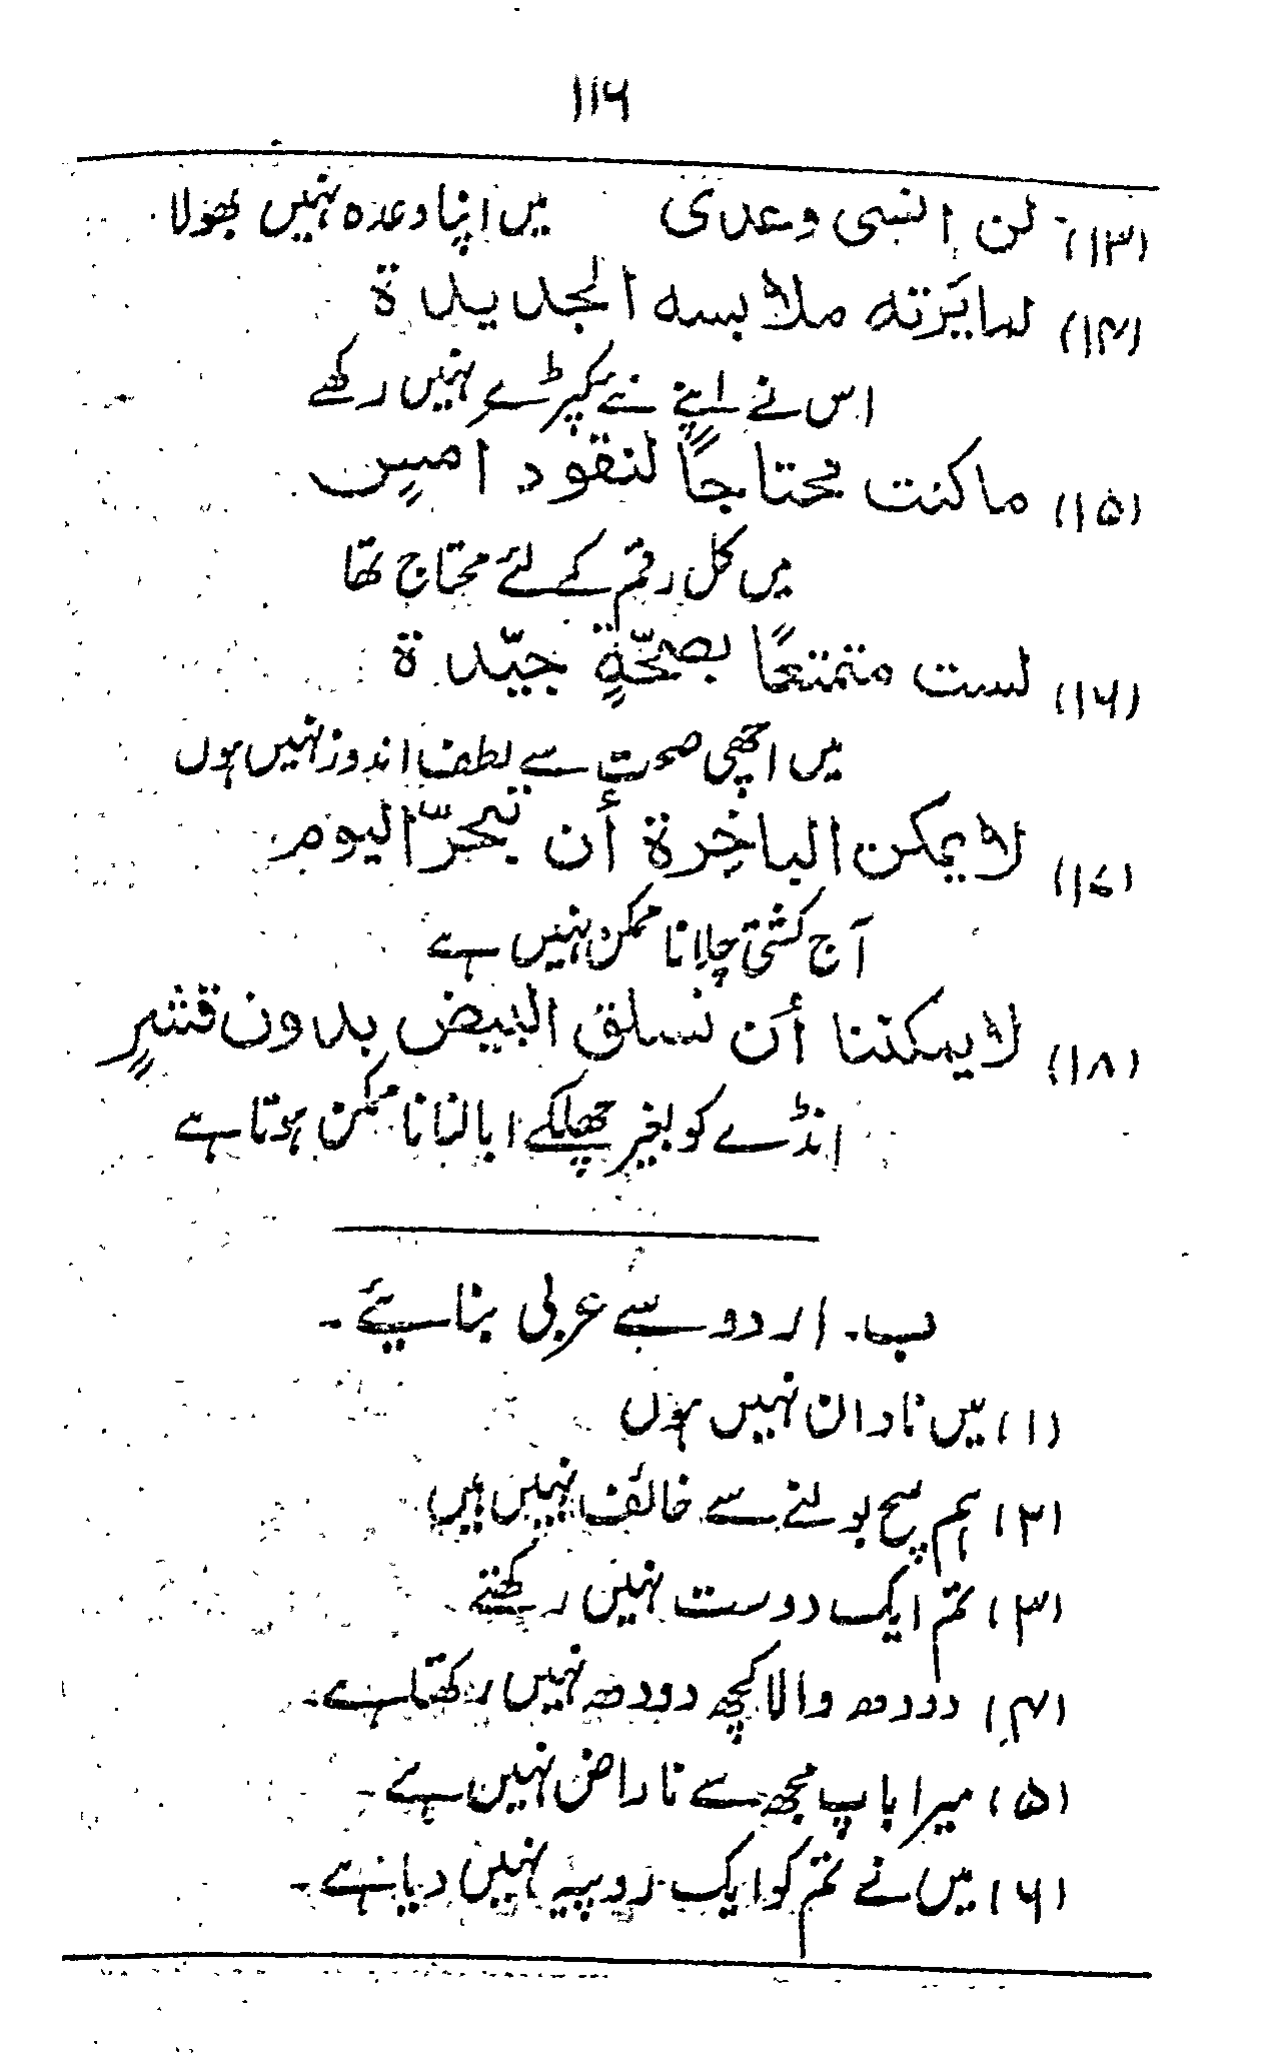 ۱۱۶
(۱۳) لن انسٰی وعدی میں اپنا وعدہ نہیں بھولا
(۱۴) لما یَرتہ ملابسہ الجدیدۃ
اس نے اپنے نئے کپڑے نہیں رکھے
(۱۵) ماکنت محتاجاً لنقود امسٍ
میں کل رقم کے لئے محتاج تھا
(۱۶) لست متمتعًا بصحّۃٍ جیّدۃ
میں اچھی صحت سے لطف اندوز نہیں ہوں
(۱۷) لا یمکن الباخِرۃ أن تبحرّ الیوم
آج کشتی چلانا ممکن نہیں ہے
(۱۸) لایمکننا أن نسلق البیض بدون قشرٍ
انڈے کو بغیر چھلکے ابالنا ناممکن ہوتا ہے
ب۔ اردو سے عربی بنائیے۔
(۱) میں نادان نہیں ہوں
(۲) ہم سچ بولنے سے خائف نہیں ہیں
(۳) تم ایک دوست نہیں رکھتے۔
(۴) دودھ والا کچھ دودھ نہیں رکھتا ہے۔
(۵) میرا باپ مجھ سے ناراض نہیں ہے۔
(۶) میں نے تم کو ایک روپیہ نہیں دیا ہے۔